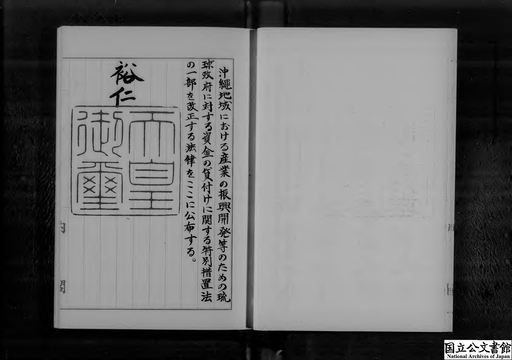 沖縄地域における産業の振興開発等のための琉
球政府に対する資金の貸付けに関する特別措置法
の一部を改正する法律をここに公布する。
裕仁
天皇
御璽
国立公文書館
National Archives of Japan